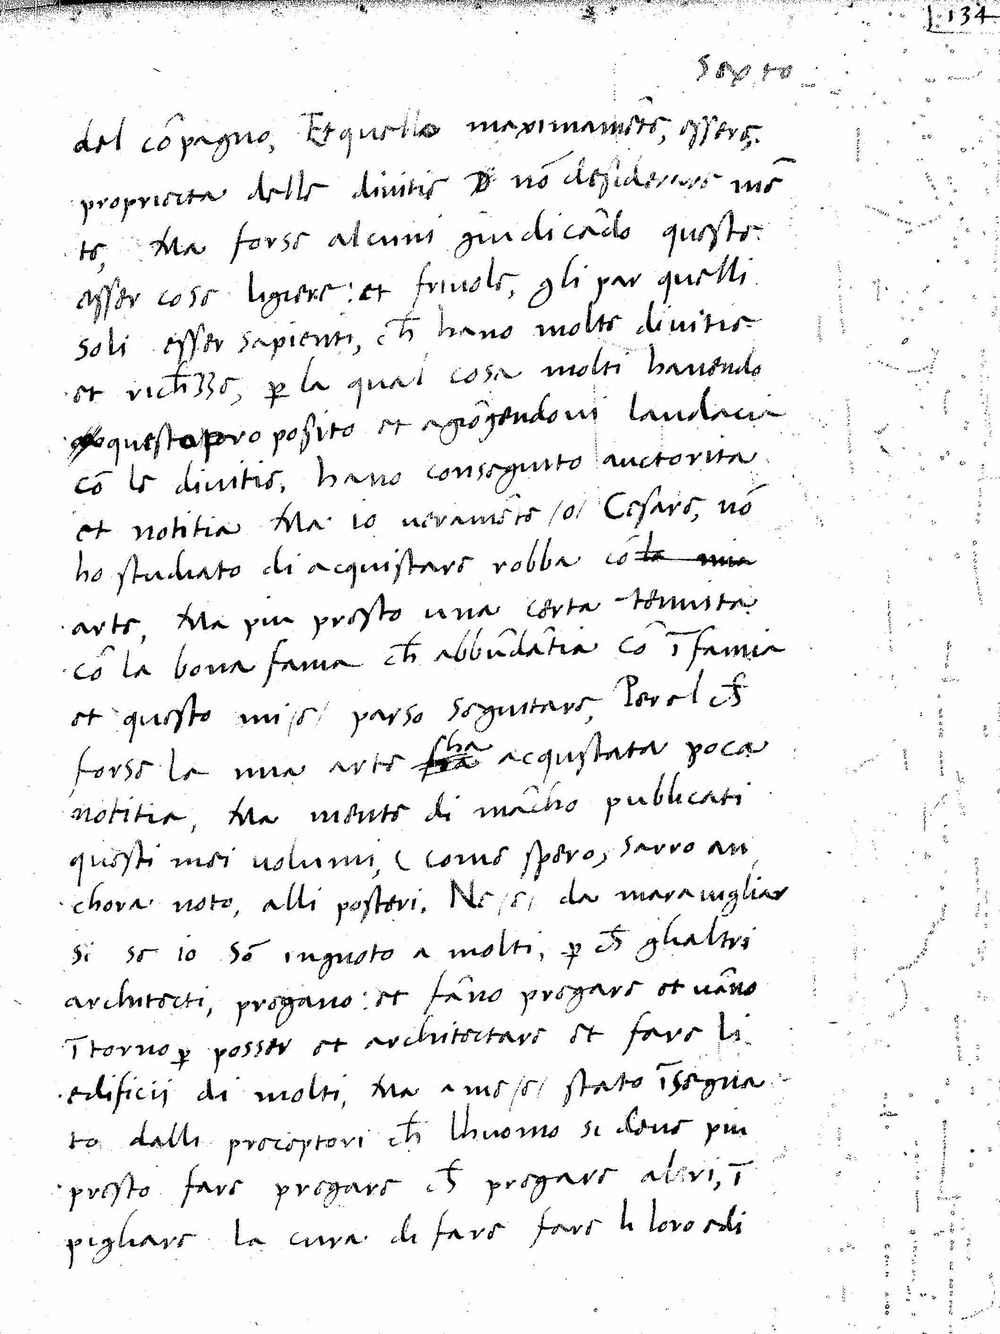 134
Sexto
del cõpagno, Et quello maximamẽte, essere,
proprieta delle divitie nõ desiderare niẽ
te, Ma forse alcuni giudicãdo queste
esser cose ligiere: et frivole, gli par quelli
soli esser sapienti, ch̃ hano molte divitie
et rich̃zze, ꝑ la qual cosa molti havendo
questo proposito et agiõgendovi laudacia
cõ le divitie, hano conseguito auctorita
et notitia Ma io veramẽte /o/ Cesare, nõ
ho studiato di acquistare robba cõ la mia
arte, Ma piu presto una certa tenuita
cõ la bona fama ch̃ abbũdãtia cõ ĩfamia
et questo mi /e/ parso seguitare, Per el ch̃
forse la mia arte ha acquistata poca
notitia, Ma niente di mãcho publicati
questi mei volumi, ( come spero, sarro an
chora noto, alli posteri. Ne /e/ da maravigliar
si se io sõ ingnoto a molti, ꝑ ch̃ ghaltri
architecti, pregano: et fãno pregare et vãno
ĩtorno ꝑ posser et architectare et fare li
edificii di molti, Ma a me /e/ stato ĩsegna
to dalli preceptori ch̃ lhuomo si deve piu
presto fare pregare ch̃ pregare altri, ĩ
pigliare la cura di fare fare li loro edi